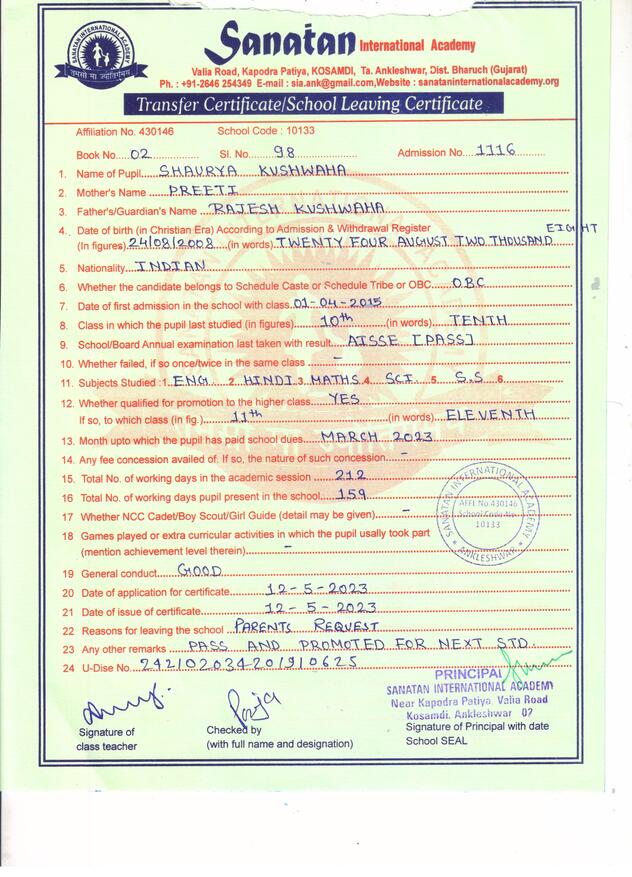 SANATAN INTERNATIONAL ACADEMY
तमसो मा ज्योतिर्गमय
Sanatan International Academy
Valia Road, Kapodra Patiya, KOSAMDI, Ta. Ankleshwar, Dist. Bharuch (Gujarat)
Ph. : +91-2646 254349 E-mail : sia.ank@gmail.com,Website : sanataninternationalacademy.org
Transfer Certificate/School Leaving Certificate
Affiliation No. 430146 School Code : 10133
Book No....02 Sl. No....98 Admission No....1116
1. Name of Pupil...SHAURYA KUSHWAHA
2. Mother's Name...PREETI
3. Father's/Guardian's Name...RAJESH KUSHWAHA
4. Date of birth (in Christian Era) According to Admission & Withdrawal Register EIGHT
(In figures)..24/08/2008...(in words).TWENTY FOUR AUGUST TWO THOUSAND
5. Nationality...INDIAN
6. Whether the candidate belongs to Schedule Caste or Schedule Tribe or OBC...OBC
7. Date of first admission in the school with class..01-04-2015
8. Class in which the pupil last studied (in figures)...10th...(in words)...TENTH
9. School/Board Annual examination last taken with result...AISSE [PASS]
10. Whether failed, if so once/twice in the same class –
11. Subjects Studied :1. ENG 2. HINDI 3. MATHS 4. SCI. 5. S.S 6.
12. Whether qualified for promotion to the higher class...YES
If so, to which class (in fig.)...11th...(in words)...ELEVENTH
13. Month upto which the pupil has paid school dues...MARCH 2023
14. Any fee concession availed of. If so, the nature of such concession...–
15. Total No. of working days in the academic session...212
16 Total No. of working days pupil present in the school...159
17 Whether NCC Cadet/Boy Scout/Girl Guide (detail may be given)...–
18 Games played or extra curricular activities in which the pupil usally took part
(mention achievement level therein)...–
SANATAN INTERNATIONAL ACADEMY
AFFI. No.430146
School Code No.
10133
* ANKLESHWAR *
19 General conduct...GOOD
20 Date of application for certificate...12-5-2023
21 Date of issue of certificate...12-5-2023
22 Reasons for leaving the school...PARENTS REQUEST
23 Any other remarks...PASS AND PROMOTED FOR NEXT STD.
24 U-Dise No...242102034201910625
PRINCIPAL
SANATAN INTERNATIONAL ACADEMY
Near Kapodra Patiya, Valia Road
Kosamdi, Ankleshwar 02
Pooja
Signature of
class teacher
Checked by
(with full name and designation)
Signature of Principal with date
School SEAL